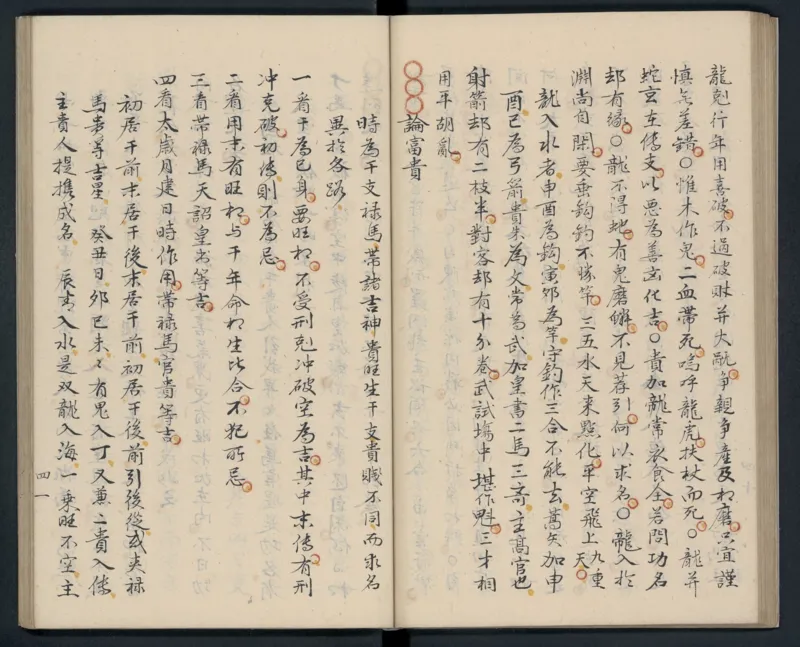 龍剋行年用喜破不過破財并大訛爭親爭產及相磨只宜謹
慎无差錯〇惟木作鬼二血帶死嗚呼龍虎扶杖而死〇龍并
蛇玄在傳支以惡為善凶化吉〇貴加龍常衣食全若問功名
却有緣〇龍不得地有鬼磨難不見荐引何以求名〇龍入於
淵尚自閑要垂鈎釣不勝竿三五水天來點化平空飛上九重天〇
龍入水者申酉為鈎寅夘為竿守釣作三合不能去蒿矢加申
酉已為弓箭貴朱為文常為武加皇書二馬三奇主高官也
射箭却有二枝半對客却有十分卷武試塲中堪作魁三才相
用平胡亂
〇〇〇論富貴
時為干支禄馬帶諸吉神貴旺生干支貴賤不同而求名
異於各路
一看干為已身要旺相不受刑剋冲破空為吉其中末傳有刑
冲克破初傳則不為忌
二看用末有旺相与干年命相生比合不犯所忌
三看帶禄馬天詔皇書等吉
四看太歲月建日時作用帶禄馬官貴等吉
初居干前末居干後末居干前初居干後前引後從或夹禄
馬貴等吉星 癸丑日夘巳未々有鬼入丁又兼二貴入傳
主貴人提携成名 辰大入水是双龍入海一乗旺不空主
四一